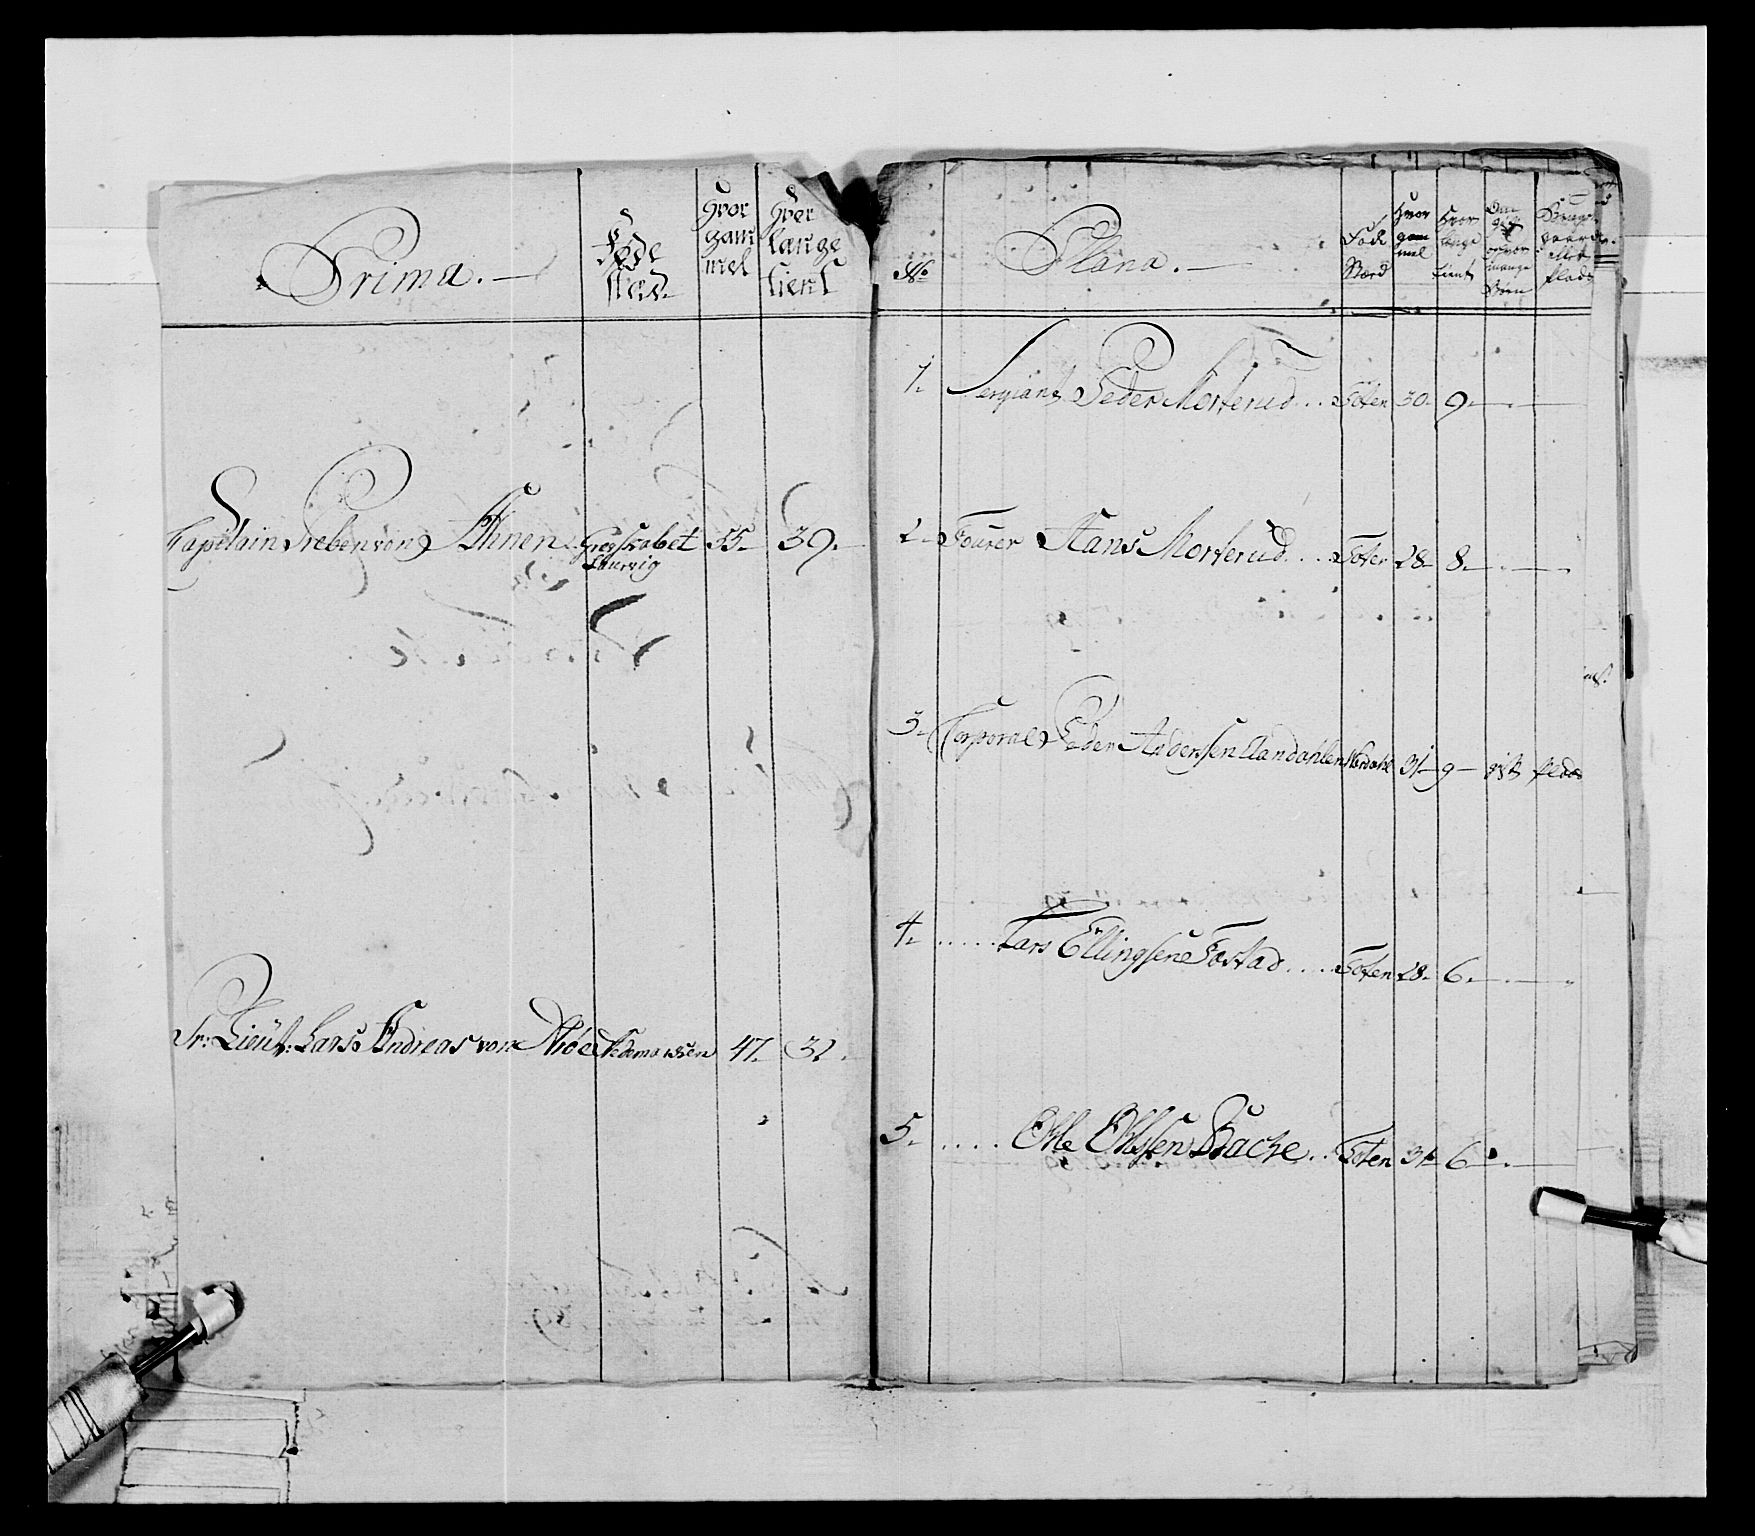 Prima.
Føde
stæd.
Hvor
gam
mel
Hvor
lange
tient
Capitain Preben von Ahnen Grevskabet 55. 39.
Laurvig
Pr: Lieut: Lars Andreas von Nedemarken 47. 32.
No Plana.
Føde
Stæd
Hvor
gam
mel
Hvor
lange
tient
Om
gift
og hvor
mange
Børn
1. Sergiant Peder Morterud... Toten 30. 9.
2. Fourer Hans Morterud.... Toten 28. 8.
3. Corporal Peder Anderssen Wardahl 31 9 gift
4. ...... Lars Ellingsen Fostad.... Toten 28. 6.
5. .... Olle Olssen Bache.. Toten 31. 6.